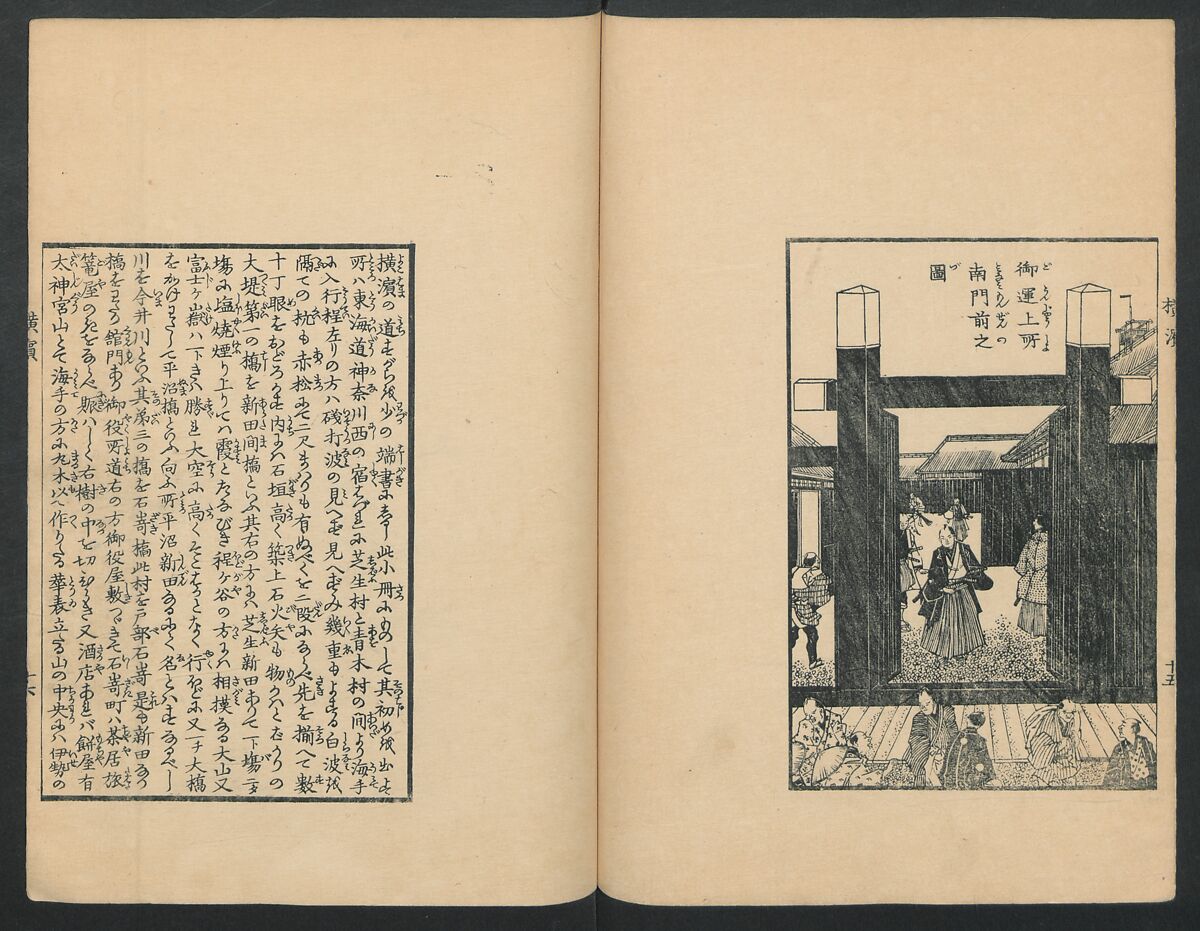 横濱
御運上所
南門前之
圖
十五
横濱の道すがらを少の端書に為し此小冊にものして其初めを出す
所ハ東海道神奈川西の宿はづれに芝生村と青木村の間より海手
に入行程左りの方ハ磯打波の見へ
見へ
幾重もよする白波を
隔ての杭も赤松にて二尺まわりも有ぬべくを二段にならべ先を揃へて数
十丁眼をおどろかせ内にハ石垣高く築上石火矢も物かハとばかりの
大堤第一の橋を新田間橋といふ其右の方にハ芝生新田ありて下
塲に塩焼煙り上りてハ霞とたなびき程ケ谷の方にハ相模なる大山又
富士ケ嶽ハ
勝れ大空に高くそことはなく行ほどに又一ツ大橋
をかけわたして平沼橋といふ向ふ所平沼新田なるよし名とハすなるべし
川を今井川といふ其第三の橋を石嵜橋此村を戸部石嵜是も新田なり
橋をわたり舘門あり御役所道右の方御役屋敷つゞきて石嵜町ハ茶居旅
篭屋の
をならべ賑ハしく右樹の中を切ひらき又酒店あれバ餅屋有
太神宮山とて海手の方に丸木以て作りたる華表立たる山の中央にハ伊勢の
横濱
十六